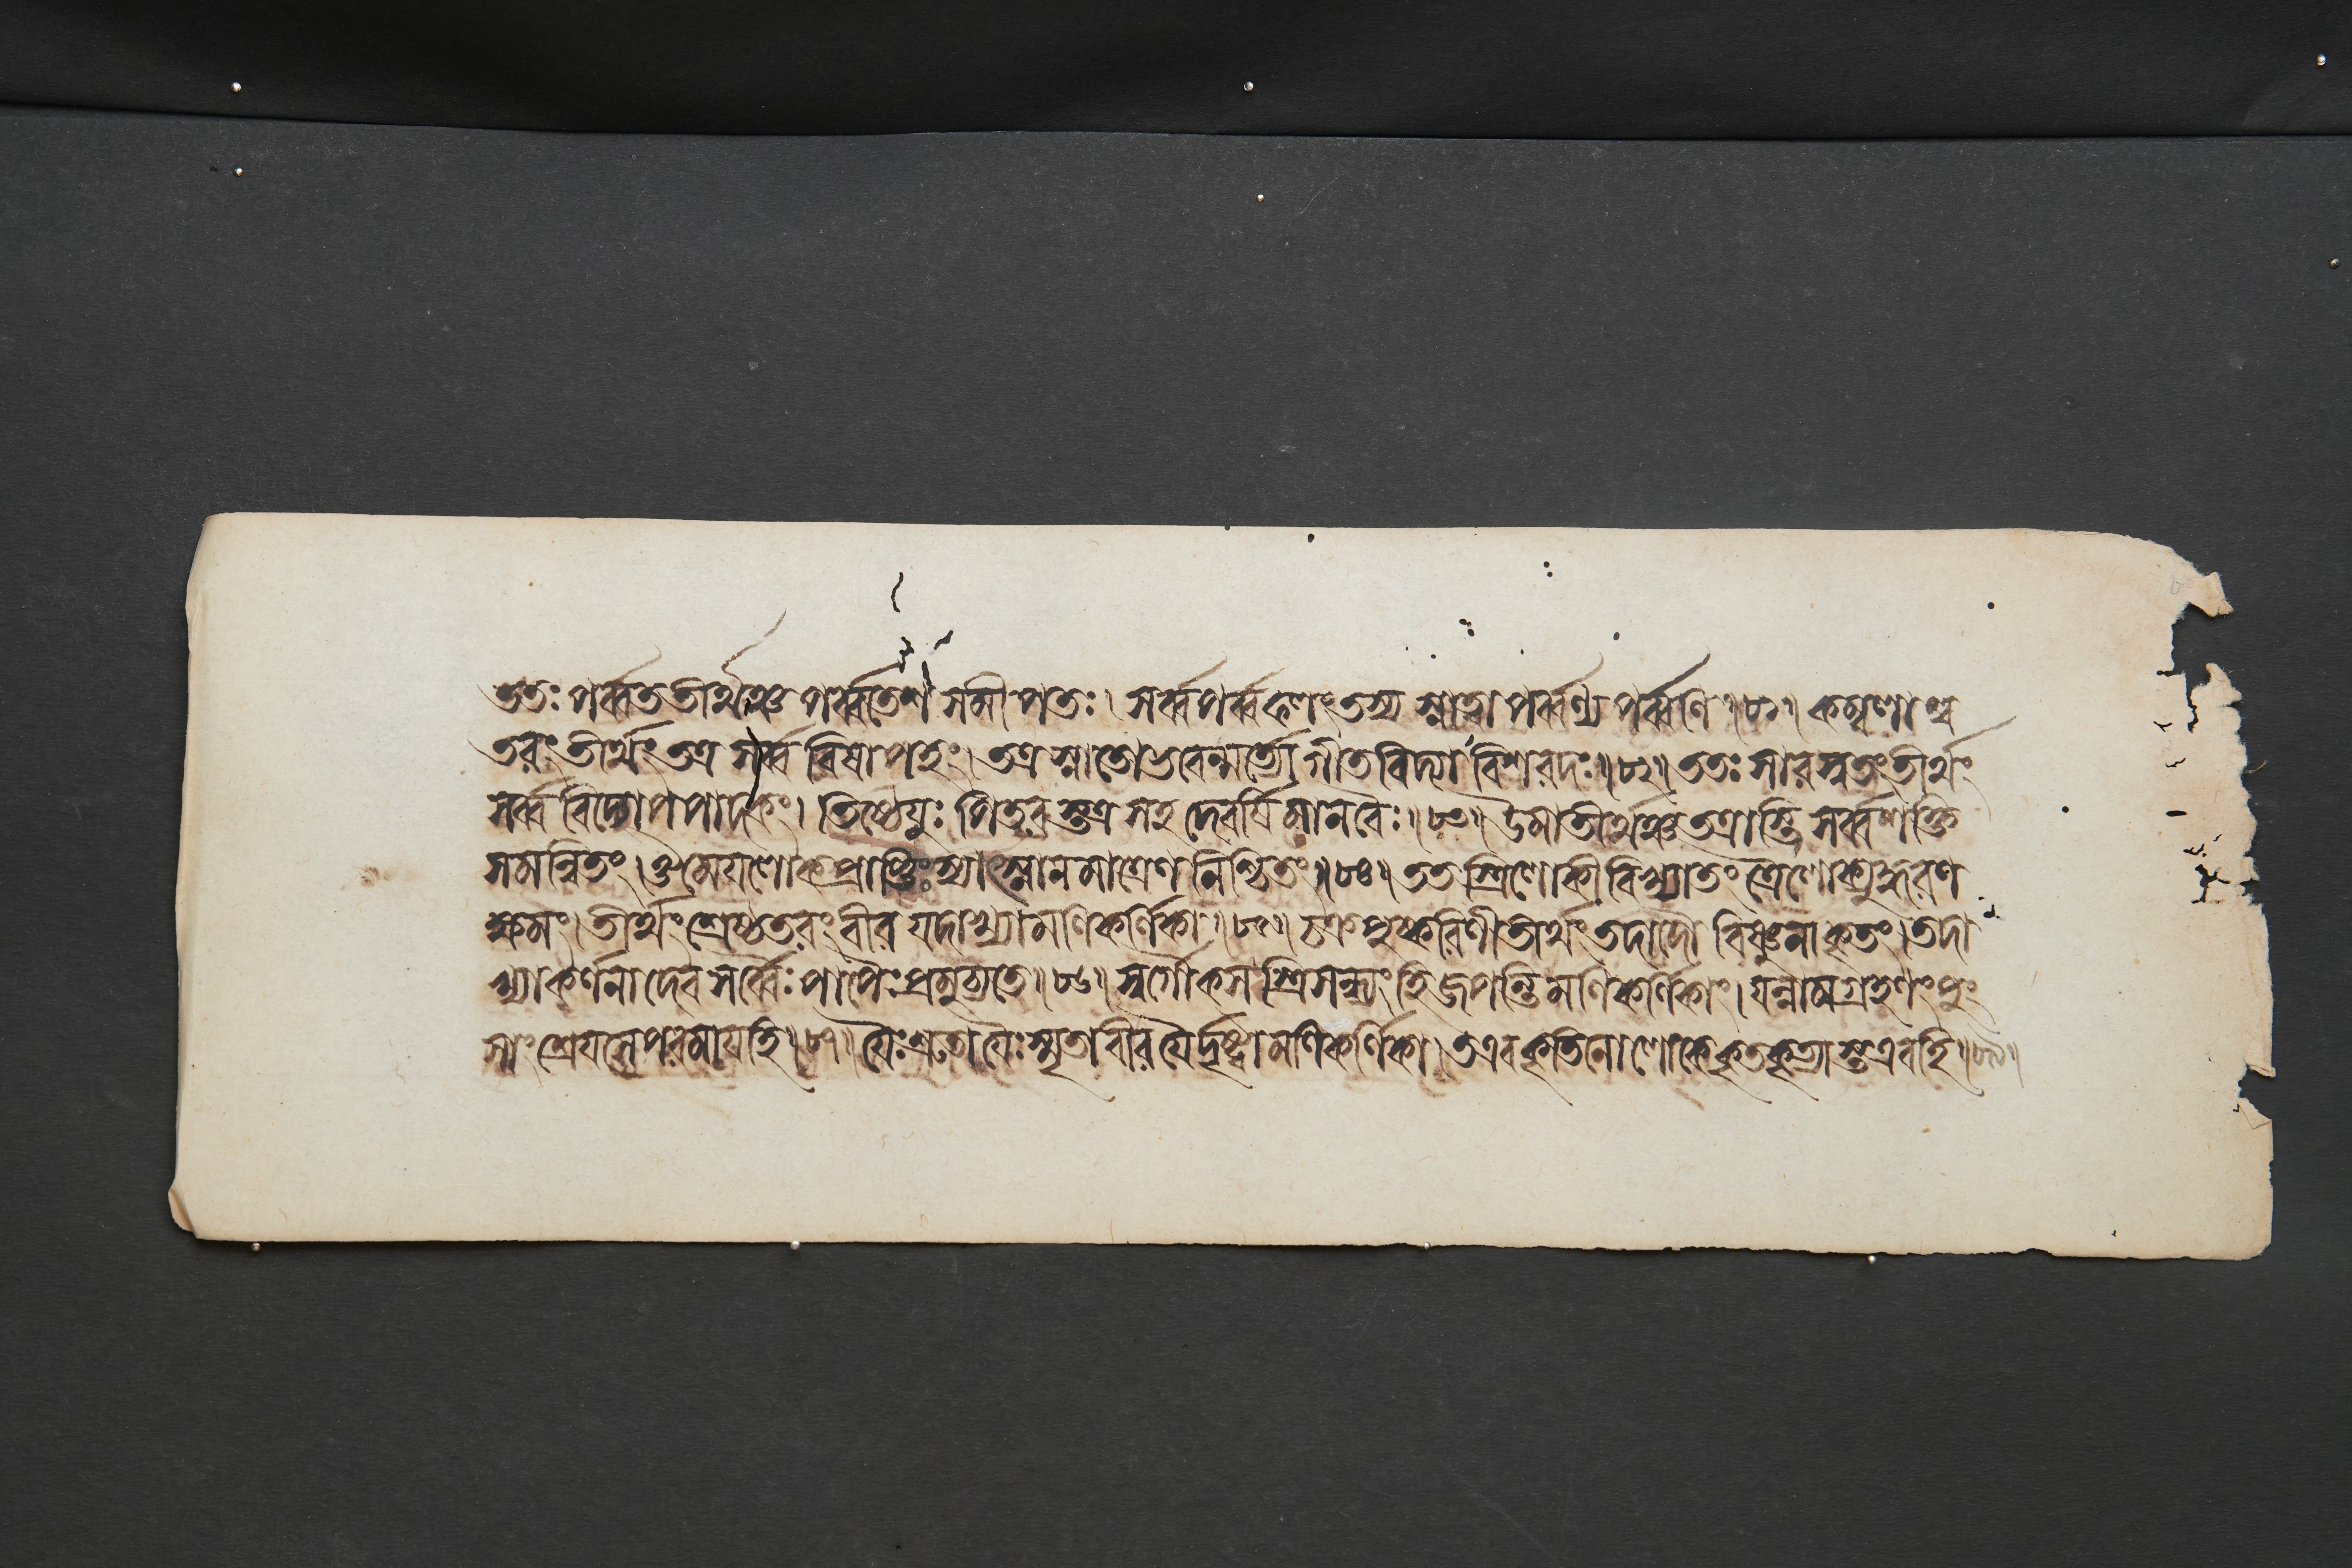 ততঃ পর্ব্বততীর্থঞ্চ পর্ব্বতেশ সমীপতঃ। সর্ব্বপর্ব্বফলং তস্য স্নাত্বা পর্ব্বণ্যপর্ব্বণি॥৮১॥ কম্বলাশ্ব
তরং তীর্থং তত্র সর্ব্ব বিষাপহং। তত্র স্নাতো ভবেন্মর্ত্যো গীতবিদ্যা বিশরদঃ॥৮২॥ ততঃ সারস্বতং তীর্থং
সর্ব্ব বিদ্যোপপাদকং। তিষ্ঠেয়ুঃ পিতরস্তত্র সহ দেবর্ষি মানবৈঃ॥৮৩॥ উমাতীর্থঞ্চ তত্রাস্তি সর্ব্বশক্তি
সমন্বিতং। ঔমেয়লোকপ্রাপ্তিঃ স্যাৎ স্নানমাত্রেণ নিশ্চিতং॥৮৪॥ ততস্ত্রিলোকী বিখ্যাতং ত্রৈলোক্যুদ্ধরণ
ক্ষমং। তীর্থং শ্রেষ্ঠতরং বীর যদাখ্যা মণিকর্ণিকা॥৮৫॥ চক্রপুষ্করিণীতীর্থং তদাদৌ বিষ্ণুনা কৃতং। তদা
খ্যাকর্ণনাদেব সর্ব্বৈঃ পাপৈঃ প্রমুচ্যতে॥৮৬॥ স্বর্গৌকসস্ত্রিসন্ধ্যং হি জপন্তি মণিকর্ণিকাং। যন্নামগ্রহণং পুং
সাং শ্রেয়সে পরমায় হি॥৮৭॥ যৈঃ শ্রুতা যৈঃ স্মৃতা বীর যৈর্দৃষ্টা মণিকর্ণিকা। ত এব কৃতিনো লোকে কৃতকৃত্যাস্ত এব হি॥৮৮॥